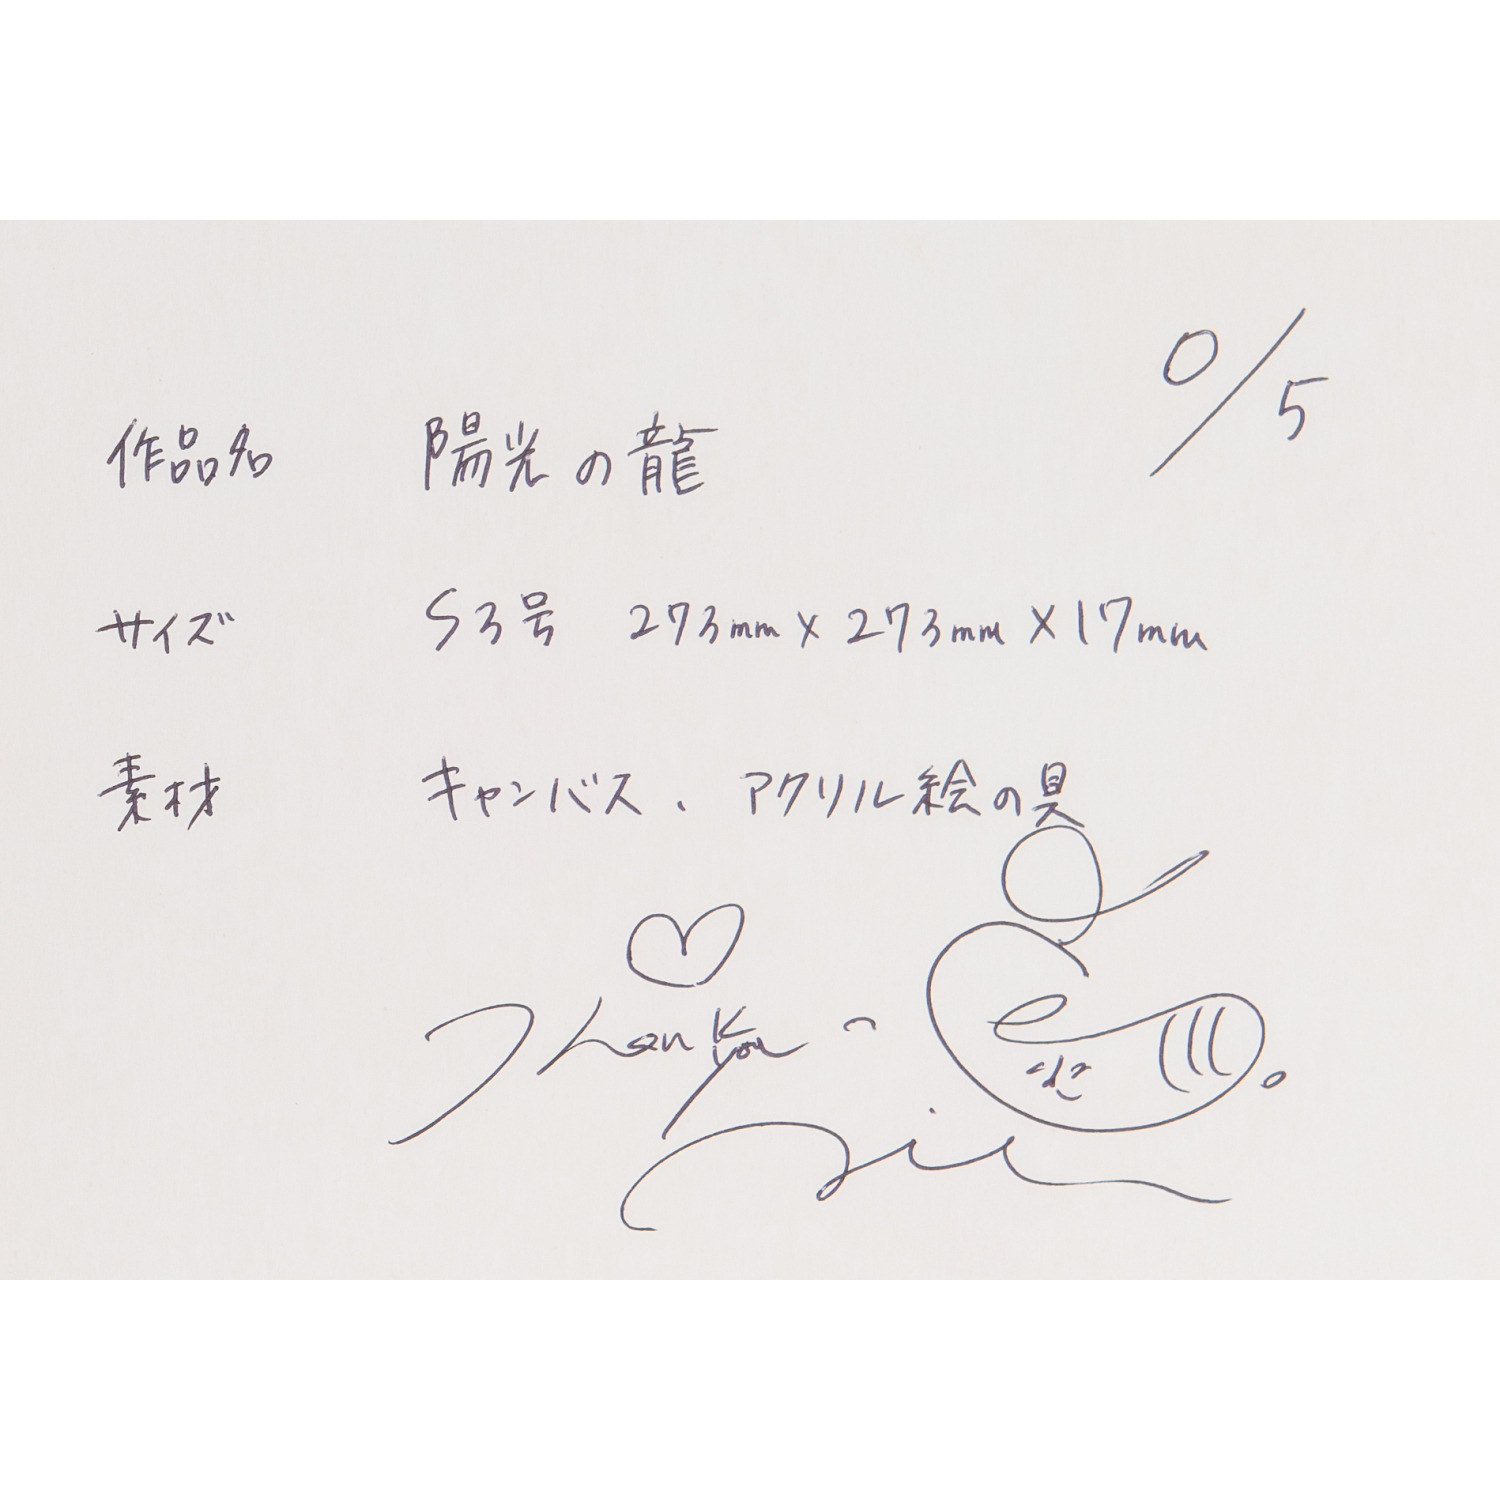 0/5
作品名 陽光の龍
サイズ S3号 273mm×273mm×17mm
素材 キャンバス、アクリル絵の具
Thank you